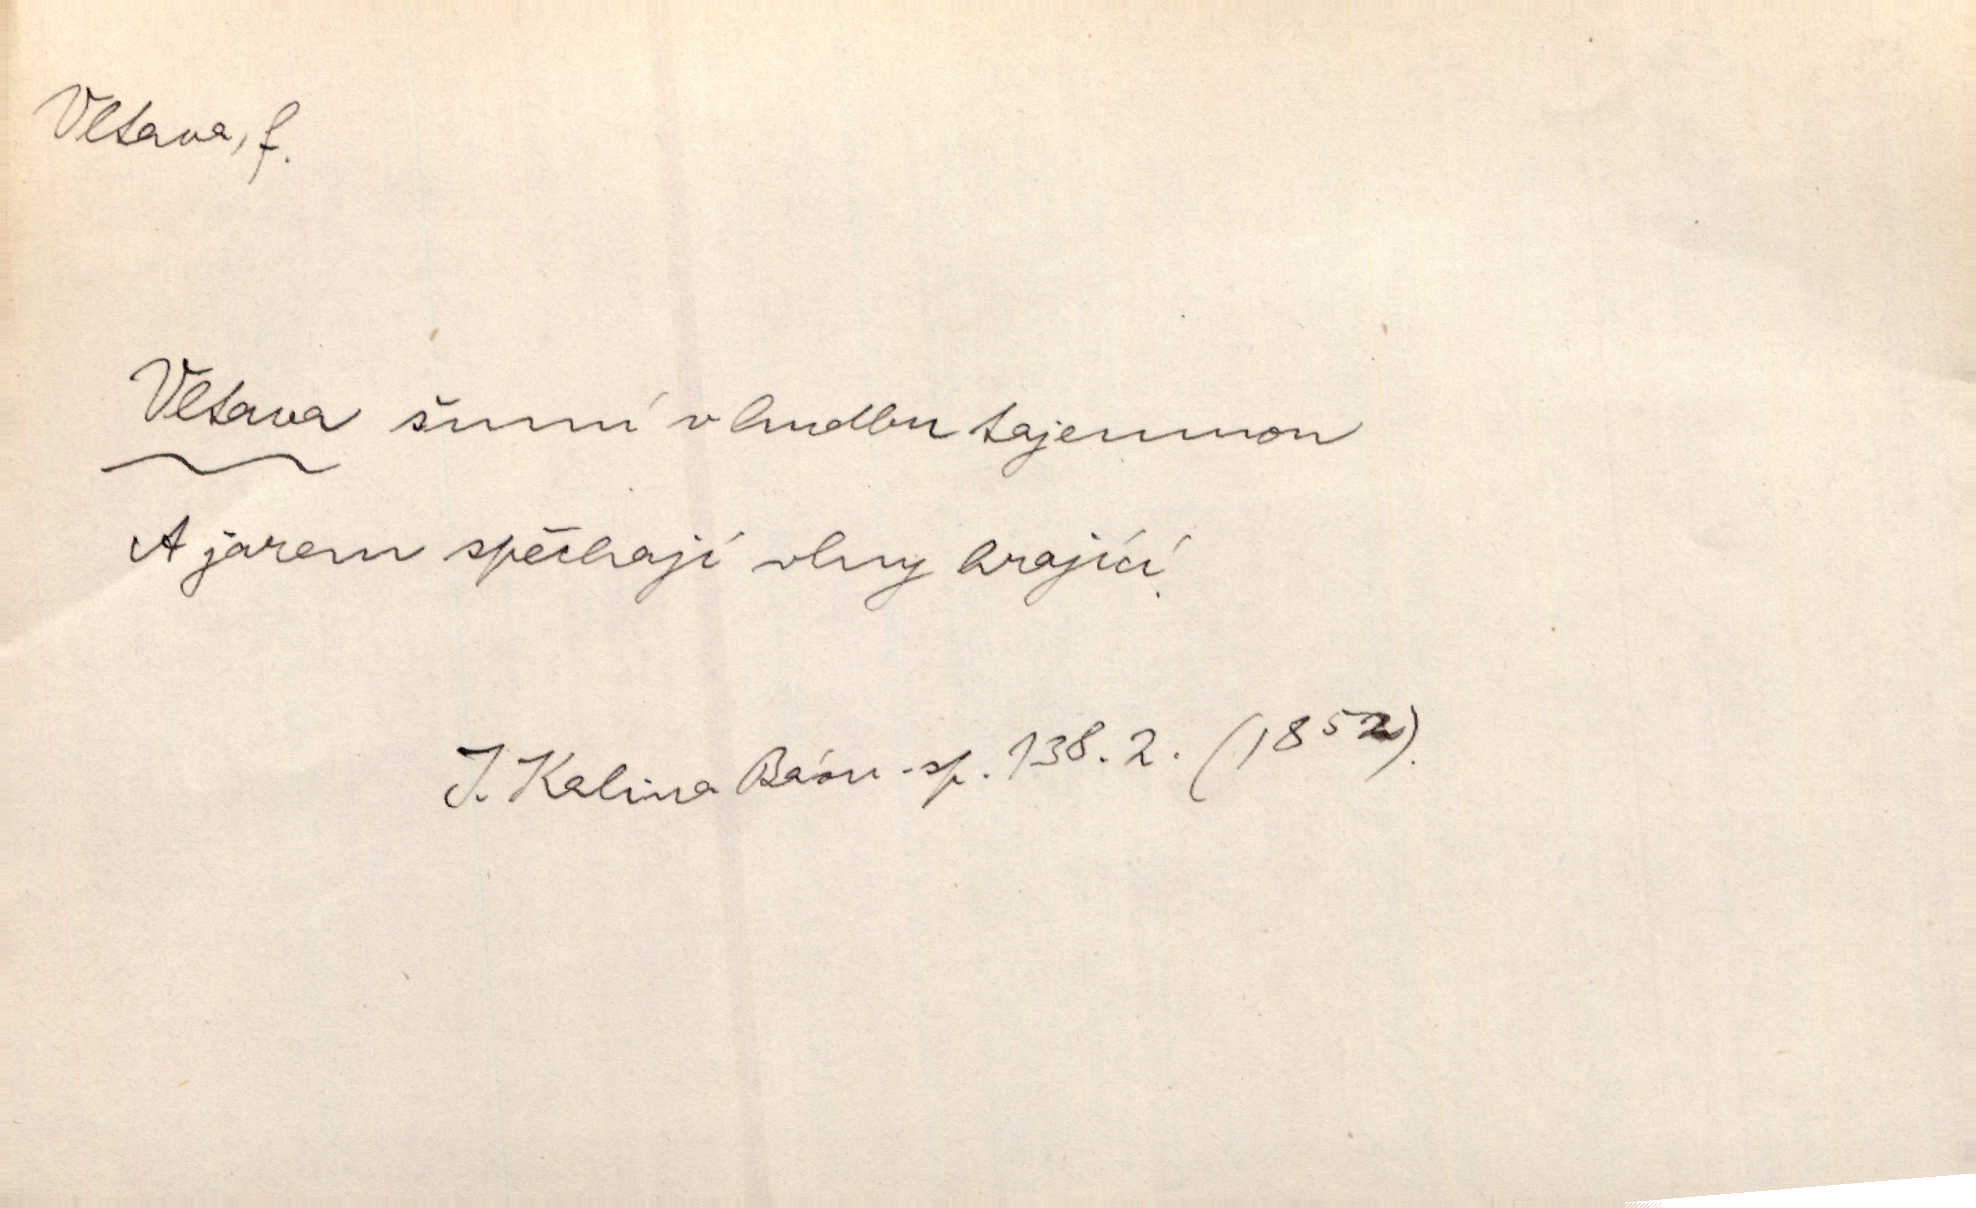 Vltava, f.
Vltava šumí v hudbu tajemnou
A jarem spěchají vlny hrající.
J. Kalina Básn. sp. 138. 2. (1852).